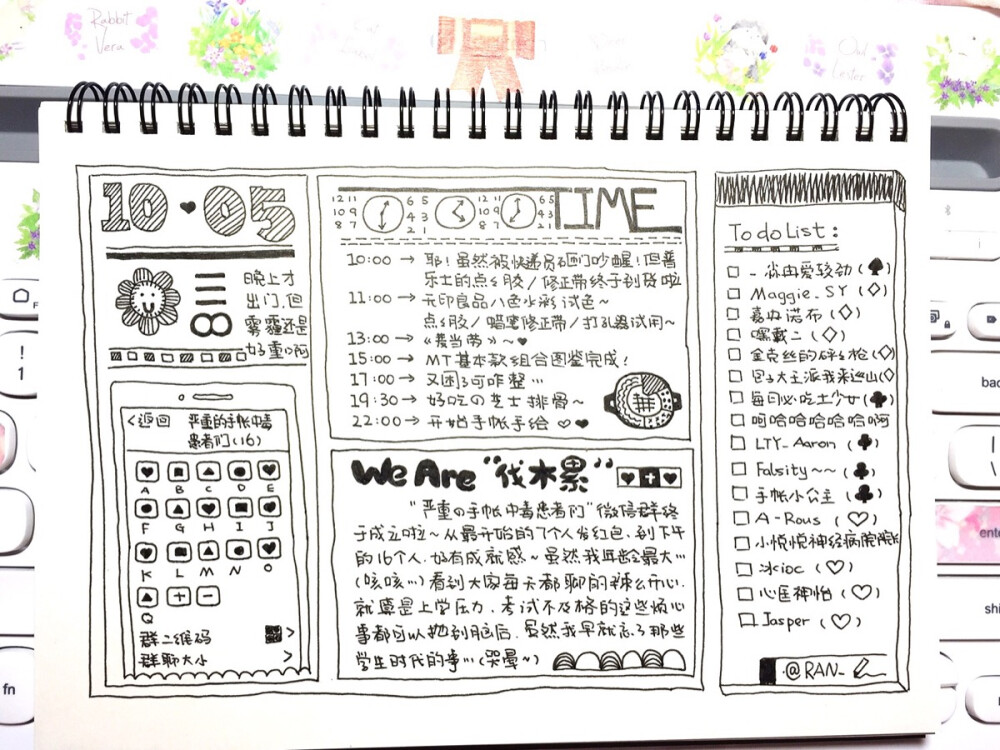 Rabbit
Vera
Owl
Lester
10 ♥ 05
三
8
晚上才
出门,但
雾霾还是
好重啊
<返回 严重的手帐中毒
患者们(16)
A B C D E
F G H I J
K L M N O
Q
群二维码 >
群聊大小 >
12 11 6 5 12 11 6 5
10 9 4 3 10 9 4 3
8 7 2 1 8 7 2 1
TIME
10:00 → 耶!虽然被快递员砸门吵醒!但普
乐士的点点胶/修正带终于到货啦
11:00 → 无印良品八色水彩试色~
点点胶/蜡笔修正带/打孔器试用~
13:00 → 《麦当劳》~♥
15:00 → MT基本款组合图鉴完成!
17:00 → 又困了可咋整…
19:30 → 好吃の芝士排骨~
22:00 → 开始手帐手绘♡♥
We Are "伐木累"
"严重の手帐中毒患者们"微信群终
于成立啦~从最开始的7个人发红包,到下午
的16个人,好有成就感~虽然我年龄最大…
(咳咳…)看到大家每天都聊的辣么开心,
就算是上学压力、考试不及格的这些烦心
事都可以抛到脑后,虽然我早就忘了那些
学生时代的事…(哭晕~)
To do List:
Maggie_SY (♢)
嘉如诺布 (♢)
嘿戴二 (♢)
金克丝的碎碎枪(♢)
包子大王派我来巡山(♢)
每日必吃土少女(♣)
呵哈哈哈哈哈啊
LTY_Aaron (♣)
Falsity~~ (♣)
手帐小公主 (♣)
A-Rous (♡)
小悦悦神经病院院长
冰ioc (♡)
心匡神怡 (♡)
Jasper (♡)
·@RAN_
!
1
fn
bac
ente
shi